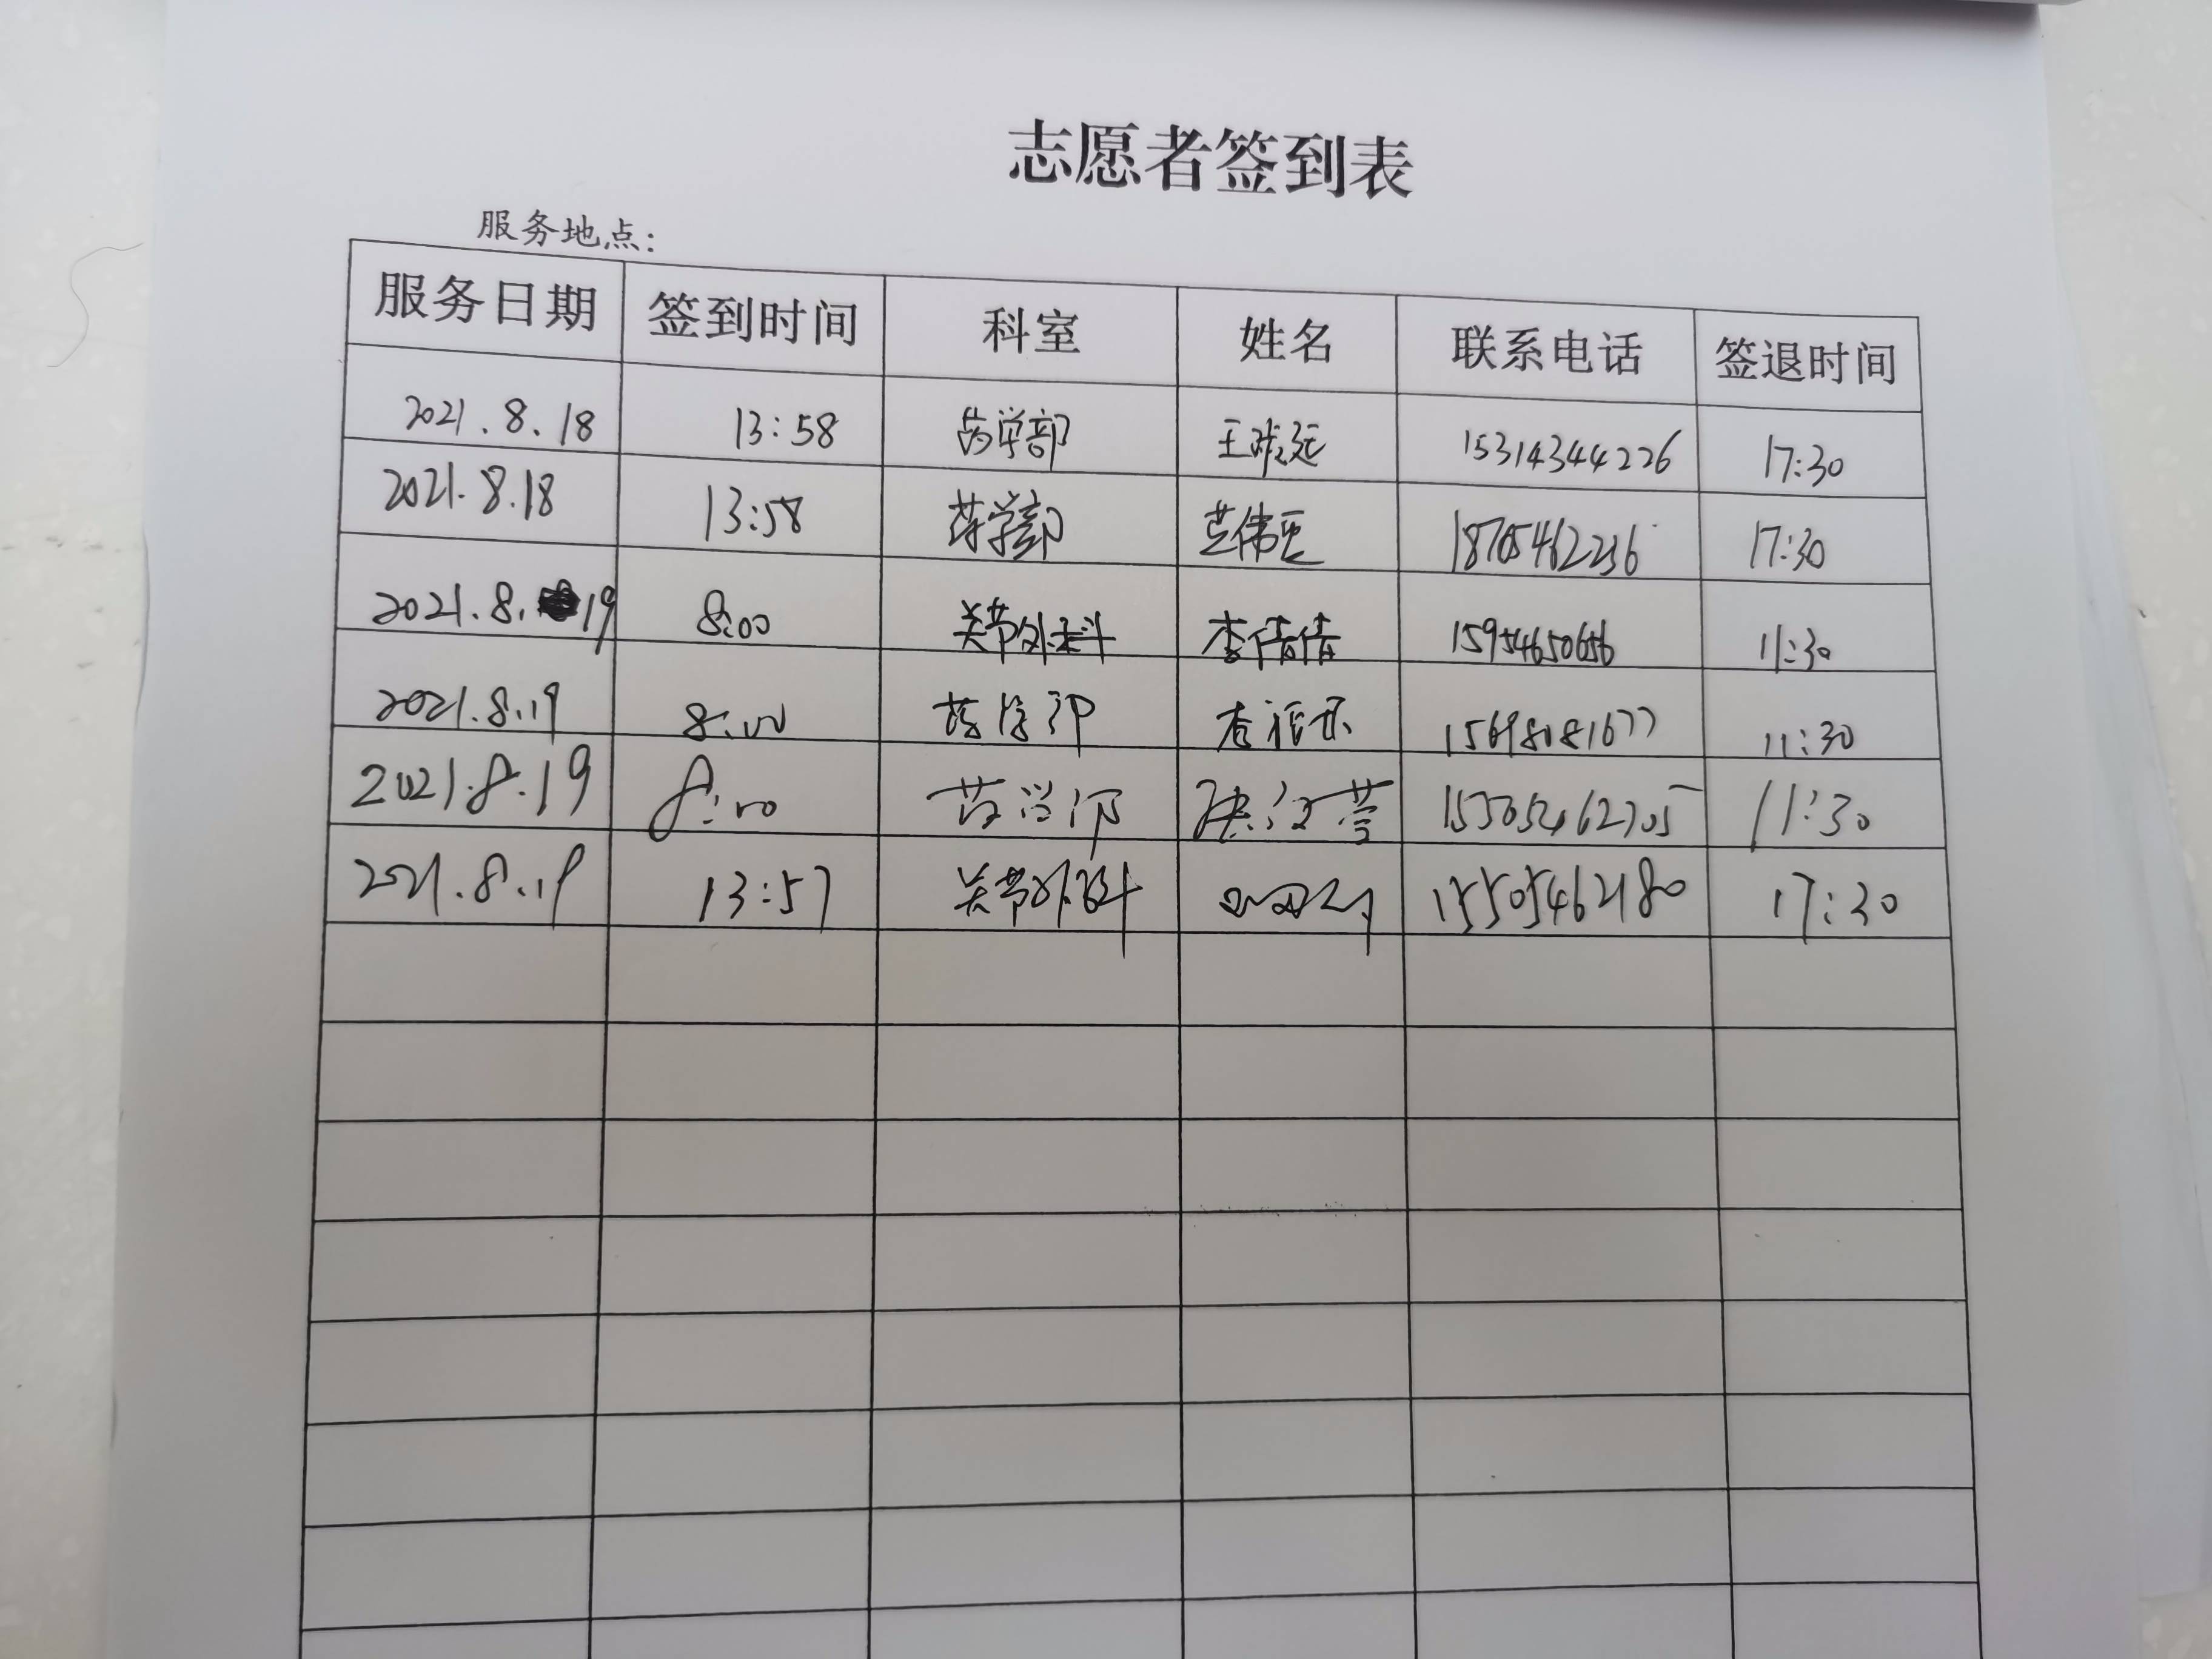 志愿者签到表
服务地点：
服务日期 签到时间 科室 姓名 联系电话 签退时间
2021.8.18 13:58 药学部 王 15314344226 17:30
2021.8.18 13:58 药学部 17:30
2021.8.19 8:00 关节外科 李倩倩 15954650656 11:30
2021.8.19 8:00 药学部 15698081677 11:30
2021.8.19 8:00 药学部 11:30
2021.8.19 13:57 关节外科 15505462180 17:30